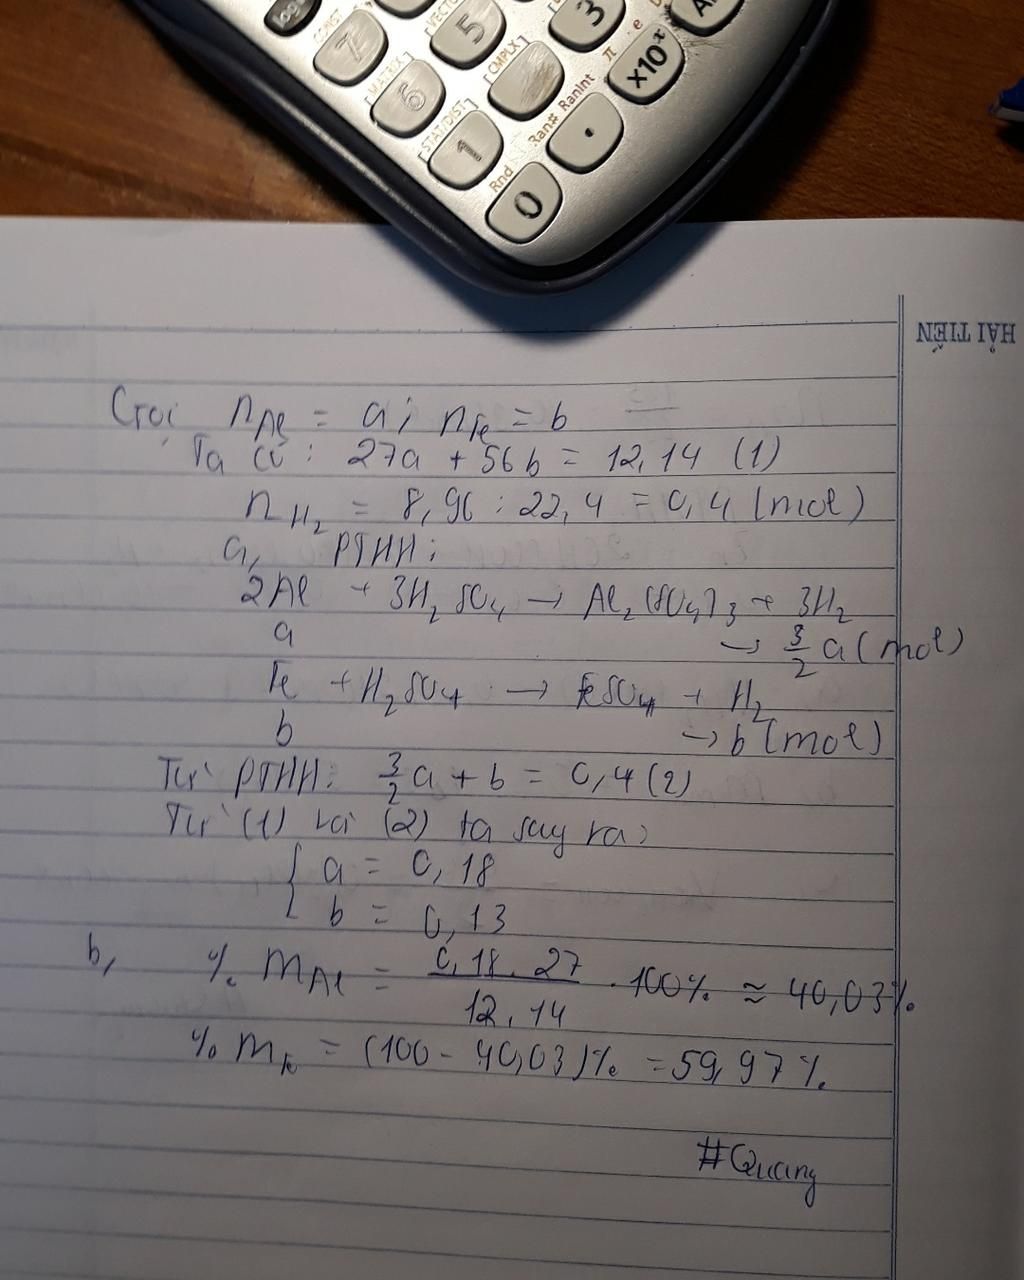 log
CONST
7
VECTOR
5
3
[MATRIX]
6
[CMPLX]
π
e
×10ˣ
[STAT/DIST]
1
Ran# RanInt
.
Rnd
0
HẢI TIẾN
Gọi nAl = a; nFe = b
Ta có: 27a + 56b = 12,14 (1)
nH₂ = 8,96 : 22,4 = 0,4 (mol)
a, PTHH:
2Al + 3H₂SO₄ → Al₂(SO₄)₃ + 3H₂
a → 3/2 a (mol)
Fe + H₂SO₄ → FeSO₄ + H₂
b → b (mol)
Từ PTHH: 3/2 a + b = 0,4 (2)
Từ (1) và (2) ta suy ra:
{ a = 0,18
b = 0,13
b, % mAl = 0,18 . 27 / 12,14 . 100% ≈ 40,03%
% mFe = (100 - 40,03)% = 59,97%
#Quang